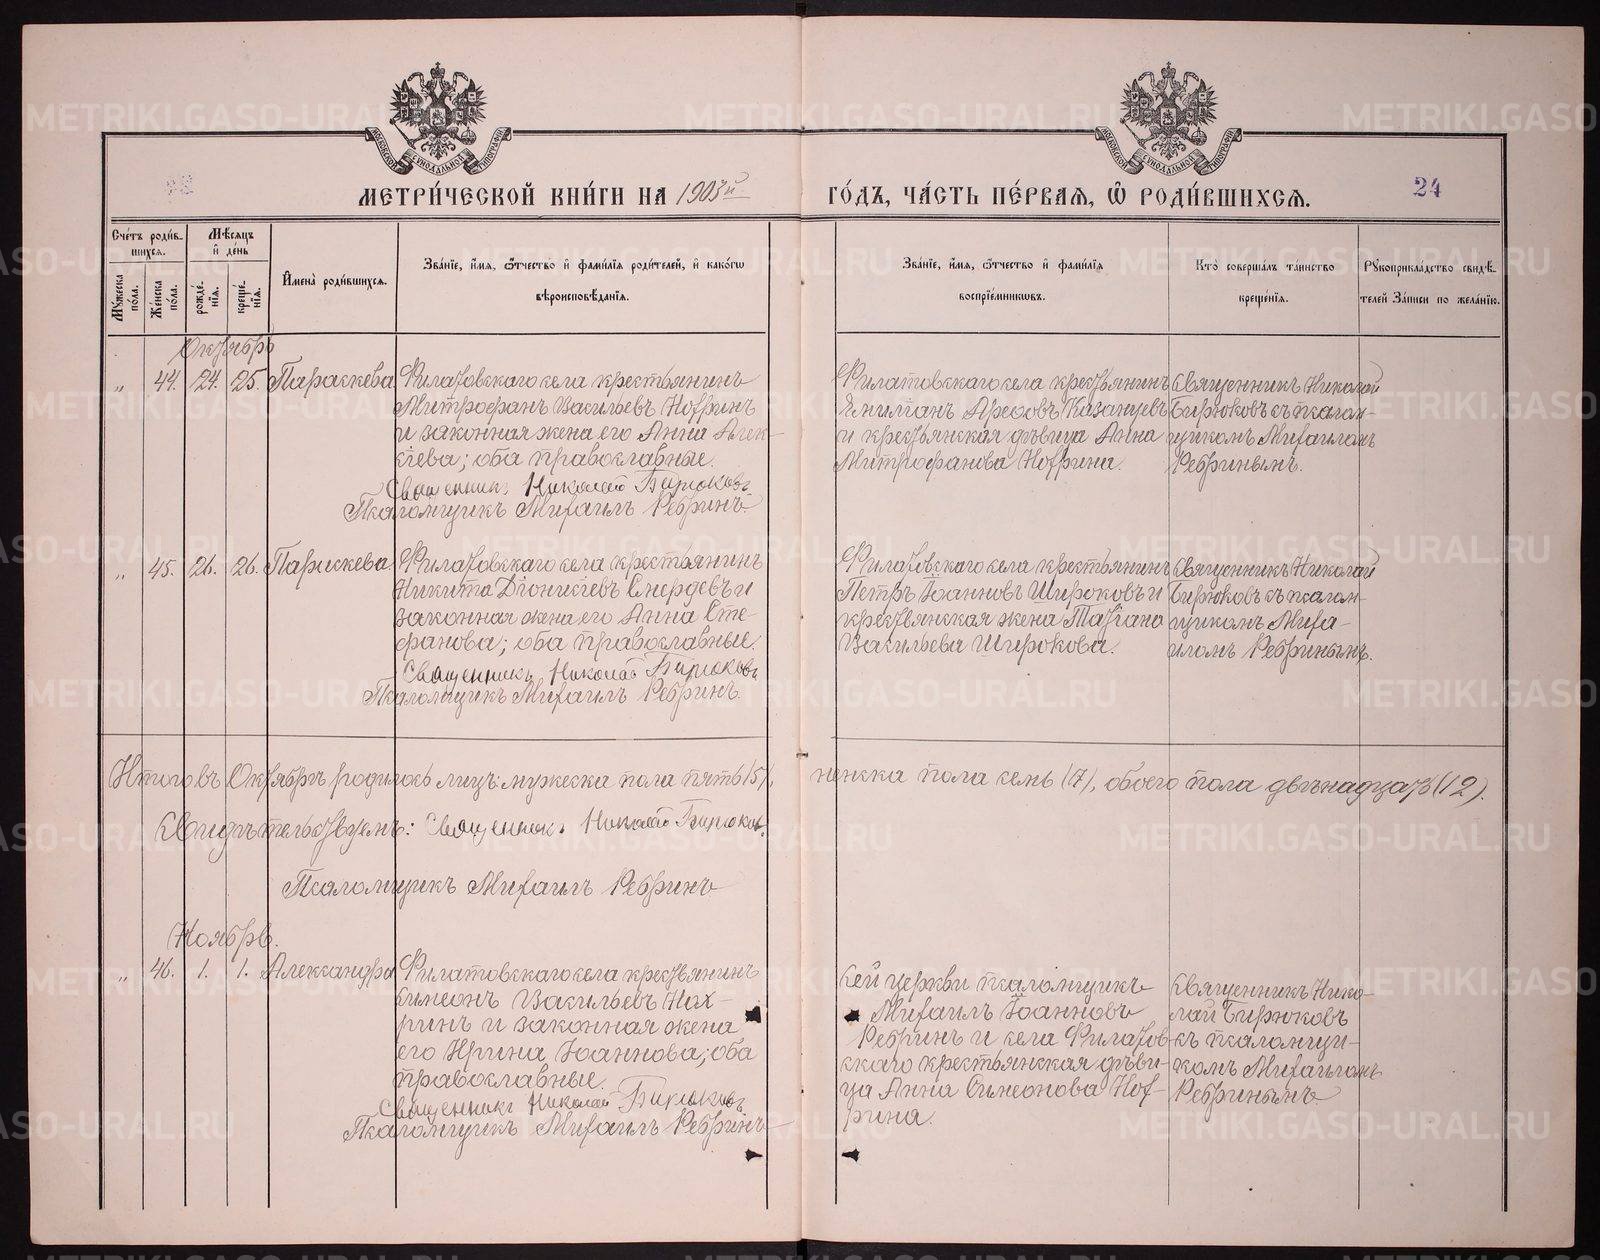 МЕТРИ́ЧЕСКОЙ КНИ́ГИ НА 1903й ГО́ДЪ, ЧА́СТЬ ПЕ́РВАЯ, Ѽ РОДИ́ВШИХСѦ.
24
Сче́тъ роди́в-
шихся.
Мѣ́сяцъ
и҆ де́нь
Мꙋ́жеска
по́ла.
Же́нска
по́ла.
рожде́-
нїя.
креще́-
нїя.
И҆мена̀ роди́вшихся.
Зва́нїе, и҆́мя, ѻ҆́тчество и҆ фами́лїя роди́телей, и҆ како́гѡ
вѣроисповѣ́данїя.
Зва́нїе, и҆́мя, ѻ҆́тчество и҆ фами́лїя
воспрїе́мникѡвъ.
Кто̀ соверша́лъ та́инство
креще́нїя.
Рꙋкоприкла́дство свидѣ́-
телей за́писи по жела́нїю.
Октябрь
„ 44. 24. 25. Параскева
Филатовскаго села крестьянинъ
Митрофанъ Васильевъ Нохринъ
и законная жена его Анна Алек-
сіева; оба православные.
Священникъ Николай Бирюковъ
Псаломщикъ Михаилъ Ребринъ.
Филатовскаго села крестьянинъ
Емилианъ Арефовъ Казанцевъ
и крестьянская дѣвица Анна
Митрофанова Нохрина.
Священникъ Николай
Бирюковъ съ псалом-
щикомъ Михаиломъ
Ребринымъ.
„ 45. 26. 26. Параскева
Филатовскаго села крестьянинъ
Никита Діонисіевъ Смердевъ и
законная жена его Анна Сте-
фанова; оба православные.
Священникъ Николай Бирюковъ
Псаломщикъ Михаилъ Ребринъ.
Филатовскаго села крестьянинъ
Петръ Іоанновъ Широковъ и
крестьянская жена Татіана
Васильева Широкова.
Священникъ Николай
Бирюковъ съ псалом-
щикомъ Миха-
иломъ Ребринымъ.
Итого въ Октябрѣ родилось лицъ: мужеска пола пять (5), женска пола семь (7), обоего пола двѣнадцать (12).
Свидѣтельствуемъ: Священникъ Николай Бирюковъ.
Псаломщикъ Михаилъ Ребринъ
Ноябрь.
„ 46. 1. 1. Александра
Филатовскаго села крестьянинъ
Симеонъ Васильевъ Нох-
ринъ и законная жена
его Ирина Іоаннова; оба
православные.
Священникъ Николай Бирюковъ
Псаломщикъ Михаилъ Ребринъ
Сей церкви псаломщикъ
Михаилъ Іоанновъ
Ребринъ и села Филатов-
скаго крестьянская дѣви-
ца Анна Симеонова Нох-
рина.
Священникъ Нико-
лай Бирюковъ
съ псаломщи-
комъ Михаиломъ
Ребринымъ